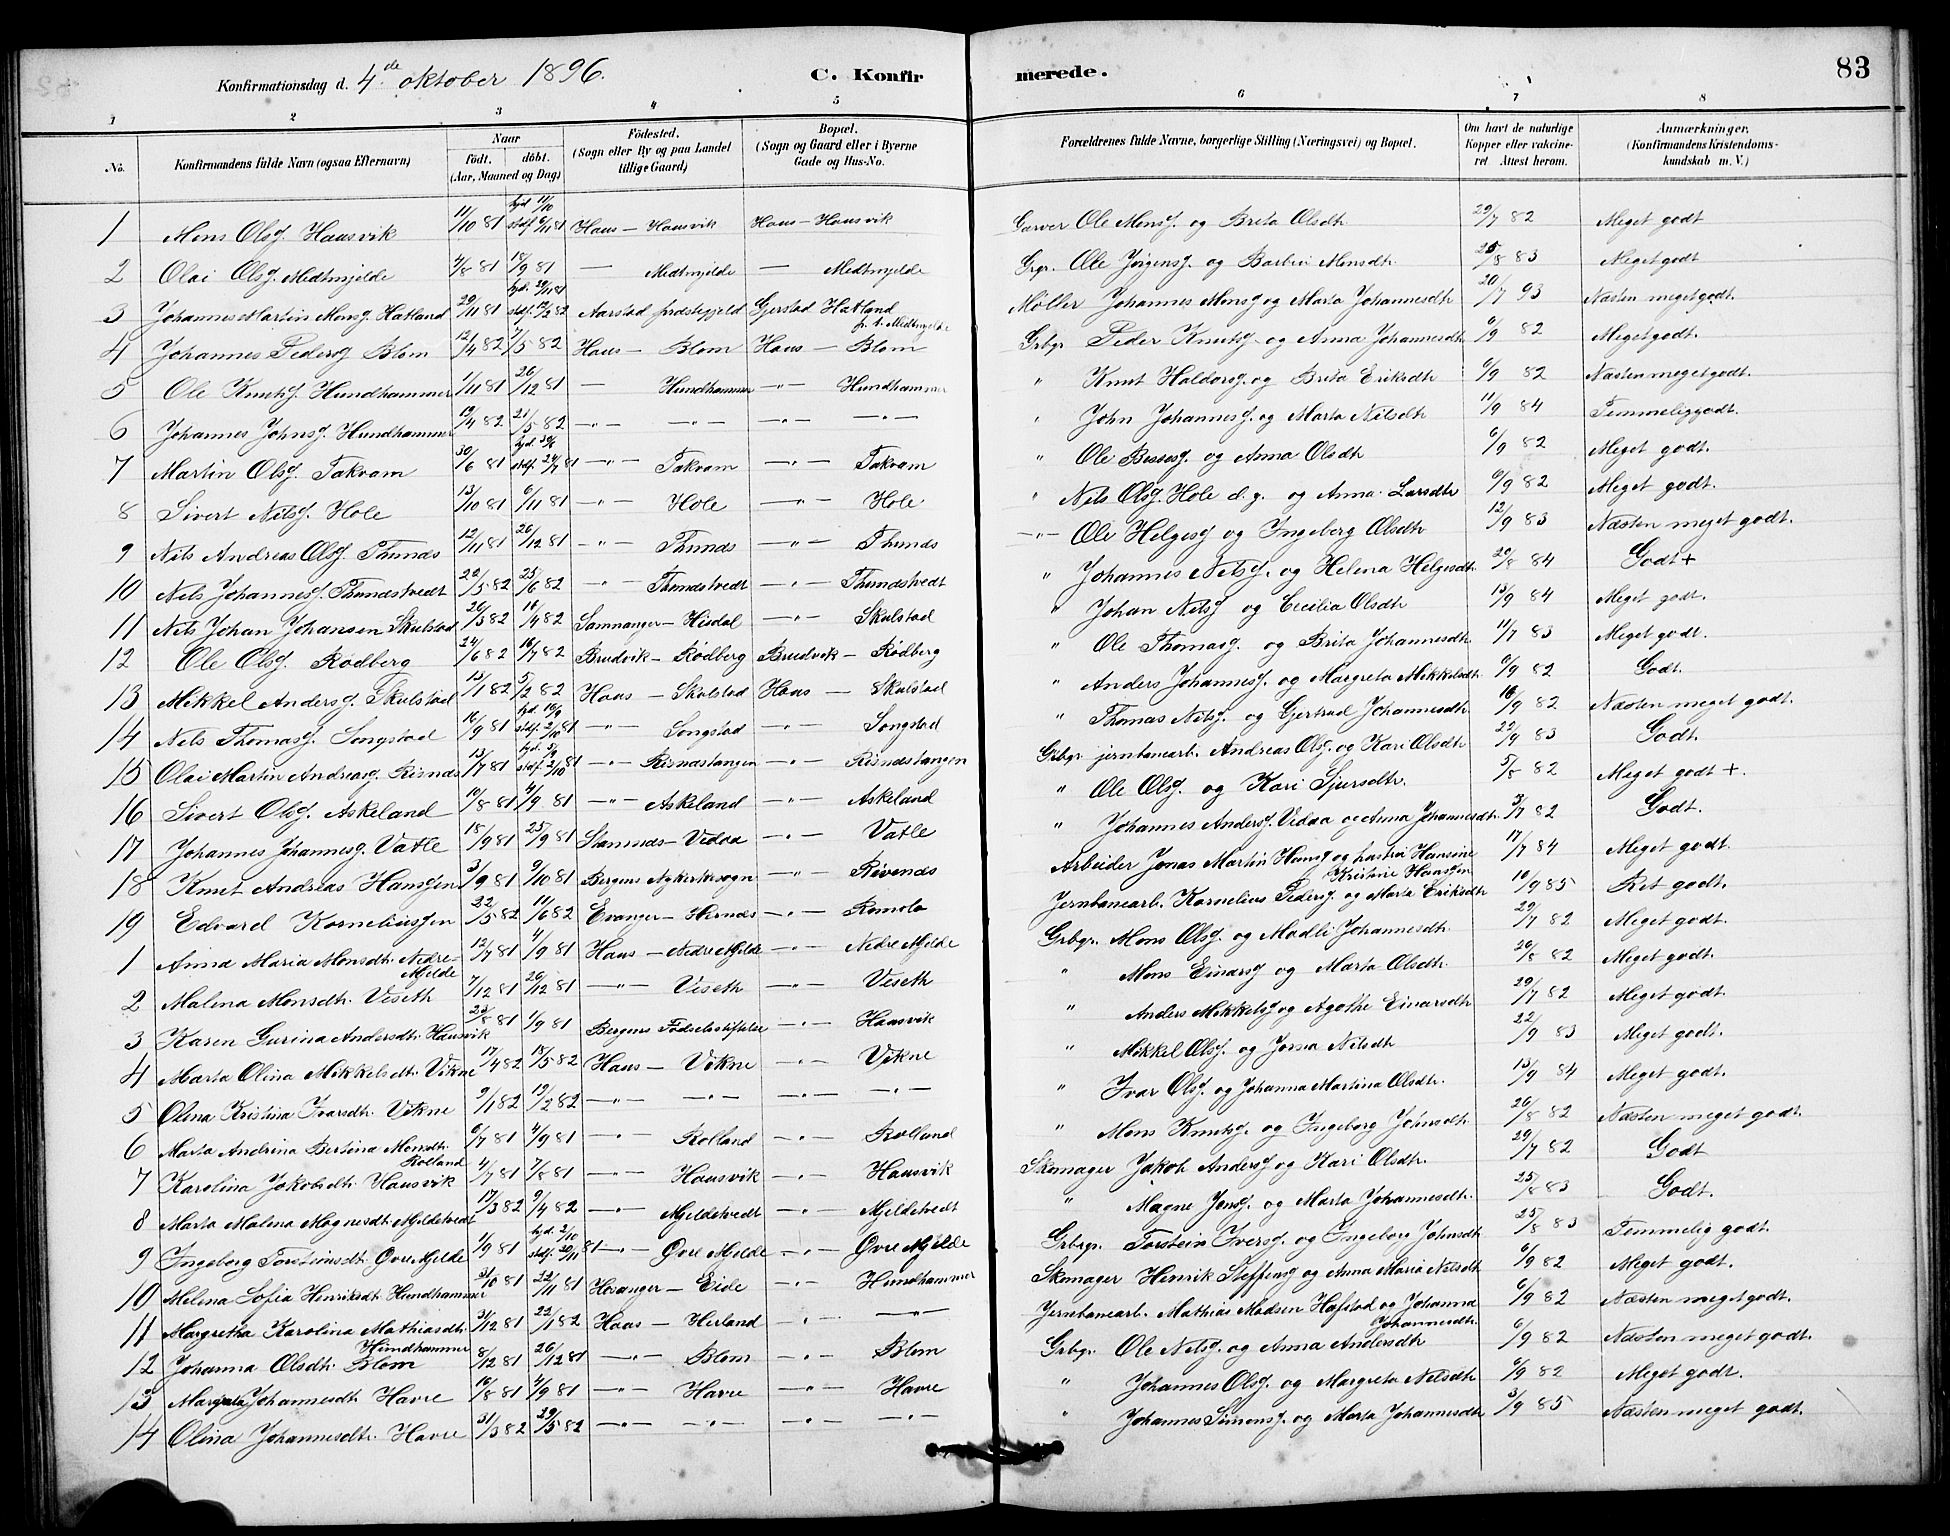 Konfirmationsdag d. 4de oktober 1896. C. Konfirmerede. 83
1 2 3 4 5 6 7 8
No. Konfirmandens fulde Navn (ogsaa Efternavn) Naar født. døbt. (Aar, Maaned og Dag) Fødested. (Sogn eller By og paa Landet tillige Gaard) Bopæl. (Sogn og Gaard eller i Byerne Gade og Hus-No. Forældrenes fulde Navne, borgerlige Stilling (Næringsvei) og Bopæl. Om havt de naturlige Kopper eller vakcineret Attest herom. Anmærkninger. (Konfirmandens Kristendomskundskab m. V.)
1 Mons Olsg. Hausvik 11/10 81 hjd. 11/10 stdf. 6/11 81 Haus — Hausvik Haus — Hausvik Garver Ole Monsg. og Brita Olsdtr 29/7 82 Meget godt
2 Olai Olsg. Medtmjelde 4/8 81 18/9 81 — Medtmjelde — Medtmjelde Grgr. Ole Jørgensg. og Barbra Monsdtr 25/8 83 Meget godt
3 Johannes Martin Monsg. Hatland 20/11 81 hjd. 20/11 81 stdf. 12/2 82 Aarstad præstegjeld Gjerstad Hatland fr. t. Medtmjelde Møller Johannes Monsg. og Marta Johannesdtr 20/7 93 Næsten meget godt.
4 Johannes Pedersg. Blom 12/4 82 7/5 82 Haus — Blom Haus — Blom Grbgr. Peder Knutsg. og Anna Johannesdtr 6/9 82 Meget godt.
5 Ole Knutsg. Hundhammer 1/11 81 26/12 81 — Hundhammer —"— Hundhammer " Knut Haldorsg. og Brita Eriksdtr 6/9 82 Næsten meget godt.
6 Johannes Johnsg. Hundhammer 19/4 82 21/5 82 —"— —"— —"— —"— " John Johannesg. og Marta Nilsdtr 11/9 84 Temmelig godt.
7 Martin Olsg. Takvam 30/6 81 hjd. 30/6 stdf. 24/7 81 —"— Takvam —"— Takvam " Ole Bessesg. og Anna Olsdtr 6/9 82 Meget godt.
8 Sivert Nilsg. Hole 13/10 81 6/11 81 —"— Hole —"— Hole " Nils Olsg. Hole d.y. og Anna Larsdtr 6/9 82 Meget godt.
9 Nils Andreas Olsg. Thunæs 12/11 81 26/12 81 —"— Thunæs —"— Thunæs —"— Ole Helgesg. og Ingeborg Olsdtr 12/9 83 Næsten meget godt.
10 Nils Johannesg. Thunestvedt 22/5 82 25/6 82 —"— Thunestvedt —"— Thunestvedt " Johannes Nilsg. og Helena Helgesdtr. 20/8 84 Godt +
11 Nils Johan Johansen Skulstad 26/3 82 10/4 82 Samnanger — Hisdal —"— Skulstad " Johan Nilsg. og Cecilia Olsdtr 13/9 84 Meget godt.
12 Ole Olsg. Rødberg 24/6 82 16/7 82 Brudvik — Rødberg Brudvik — Rødberg " Ole Thomasg. og Brita Johannesdtr 11/7 83 Meget godt.
13 Mikkel Andersg. Skulstad 13/1 82 5/2 82 Haus — Skulstad Haus — Skulstad " Anders Johannesg. og Margreta Mikkelsdtr 6/9 82 Godt.
14 Nils Thomasg. Songstad 16/9 81 hjd. 16/9 stdf. 2/10 81 —"— Songstad —"— Songstad " Thomas Nilsg. og Gjertrud Johannesdtr 16/9 82 Næsten meget godt.
15 Olai Martin Andreasg. Risnæs 13/7 81 hjd. 5/9 stdf. 2/10 81 —"— Risnæstangen —"— Risnæstangen Grbgr. jernbanearb. Andreas Olsg. og Kari Olsdtr 22/9 83 Godt.
16 Sivert Olsg. Askeland 10/8 81 4/9 81 —"— Askeland —"— Askeland " Ole Olsg. og Kari Sjursdtr. 5/8 82 Meget godt +.
17 Johannes Johannesg. Vatle 18/9 81 25/9 81 Stamnæs — Vidaa —"— Vatle " Johannes Andersg. Vidaa og Anna Johannesdtr. 3/7 82 Godt.
18 Knut Andreas Hansgen 3/9 81 9/10 81 Bergens Nykirkesogn —"— Rivenæs Arbeider Jonas Martin Hansg. og hustru Hansine Kristine Hansgen 17/7 84 Meget godt.
19 Edvard Korneliussen 22/5 82 11/6 82 Evanger — Hernæs —"— Romola Jernbanearb. Kornelius Pedersg. og Marta Eriksdtr 10/9 85 Ret godt.
1 Anna Maria Monsdtr. Nedre-Mjelde 12/7 81 4/9 81 Haus — Nedre Mjelde —"— Nedre Mjelde Grbgr. Mons Olsg. og Madli Johannesdtr. 29/7 82 Meget godt.
2 Malena Monsdtr. Viseth 7/12 81 26/12 81 —"— Viseth —"— Viseth " Mons Einarsg. og Marta Olsdtr. 20/8 82 Meget godt.
3 Karen Gurina Andersdtr. Hausvik 22/8 81 1/9 81 Bergens Fødselsstiftelse —"— Hausvik " Anders Mikkelsg. og Agathe Einarsdtr 29/7 82 Meget godt.
4 Marta Olina Mikkelsdtr. Vikne 17/4 82 18/5 82 Haus — Vikne —"— Vikne " Mikkel Olsg. og Josva Nilsdtr 22/9 83 Meget godt.
5 Olina Kristina Ivarsdtr. Vikne 9/1 82 19/2 82 —"— —"— —"— —"— " Ivar Olsg. og Johanna Martina Olsdtr. 13/9 84 Meget godt.
6 Marta Andrina Bertina Monsdtr. Rolland 6/7 81 4/9 81 —"— Rolland —"— Rolland " Mons Knutsg. og Ingeborg Johnsdtr. 26/8 82 Næsten meget godt.
7 Karolina Jakobsdtr. Hausvik 4/7 81 7/8 81 —"— Hausvik —"— Hausvik Skomager Jakob Andersg. og Kari Olsdtr. 29/7 82 Godt
8 Marta Malena Magnesdtr. Mjeldetvedt 17/3 82 9/4 82 —"— Mjeldetvedt —"— Mjeldetvedt " Magne Jonsg. og Marta Johannesdtr. 25/8 83 Godt.
9 Ingeborg Torsteinsdtr. Øvre Mjelde 1/9 81 hjd. 2/10 stdf. 20/11 81 —"— Øvre Mjelde —"— Øvre Mjelde Grbgr. Torstein Iversg. og Ingeborg Johnsdtr 25/8 83 Temmelig godt.
10 Melena Sofia Henriksdtr. Hundhammer 31/10 81 22/11 81 Hosanger — Eide —"— Hundhammer Skomager Henrik Steffensg. og Anna Maria Nilsdtr 6/9 82 Meget godt.
11 Margretha Karolina Mathiasdtr. Hundhammer 3/12 81 22/1 82 Haus — Herland —"— —"— Jernbanearb. Mathias Madsen Hafstad og Johanna Johannesdtr. 6/9 82 Næsten meget godt.
12 Johanna Olsdtr. Blom 8/12 81 26/12 81 —"— Blom —"— Blom Grbgr. Ole Nilsg. og Anna Andersdtr 6/9 82 Næsten meget godt.
13 Margreta Johannesdtr. Havre 16/8 81 4/9 81 —"— Havre —"— Havre " Johannes Olsg. og Margreta Nilsdtr 6/9 82 Meget godt.
14 Olina Johannesdtr. Havre 31/3 82 29/5 82 —"— —"— —"— —"— " Johannes Simonsg. og Marta Johannesdtr 3/9 85 Næsten meget godt.